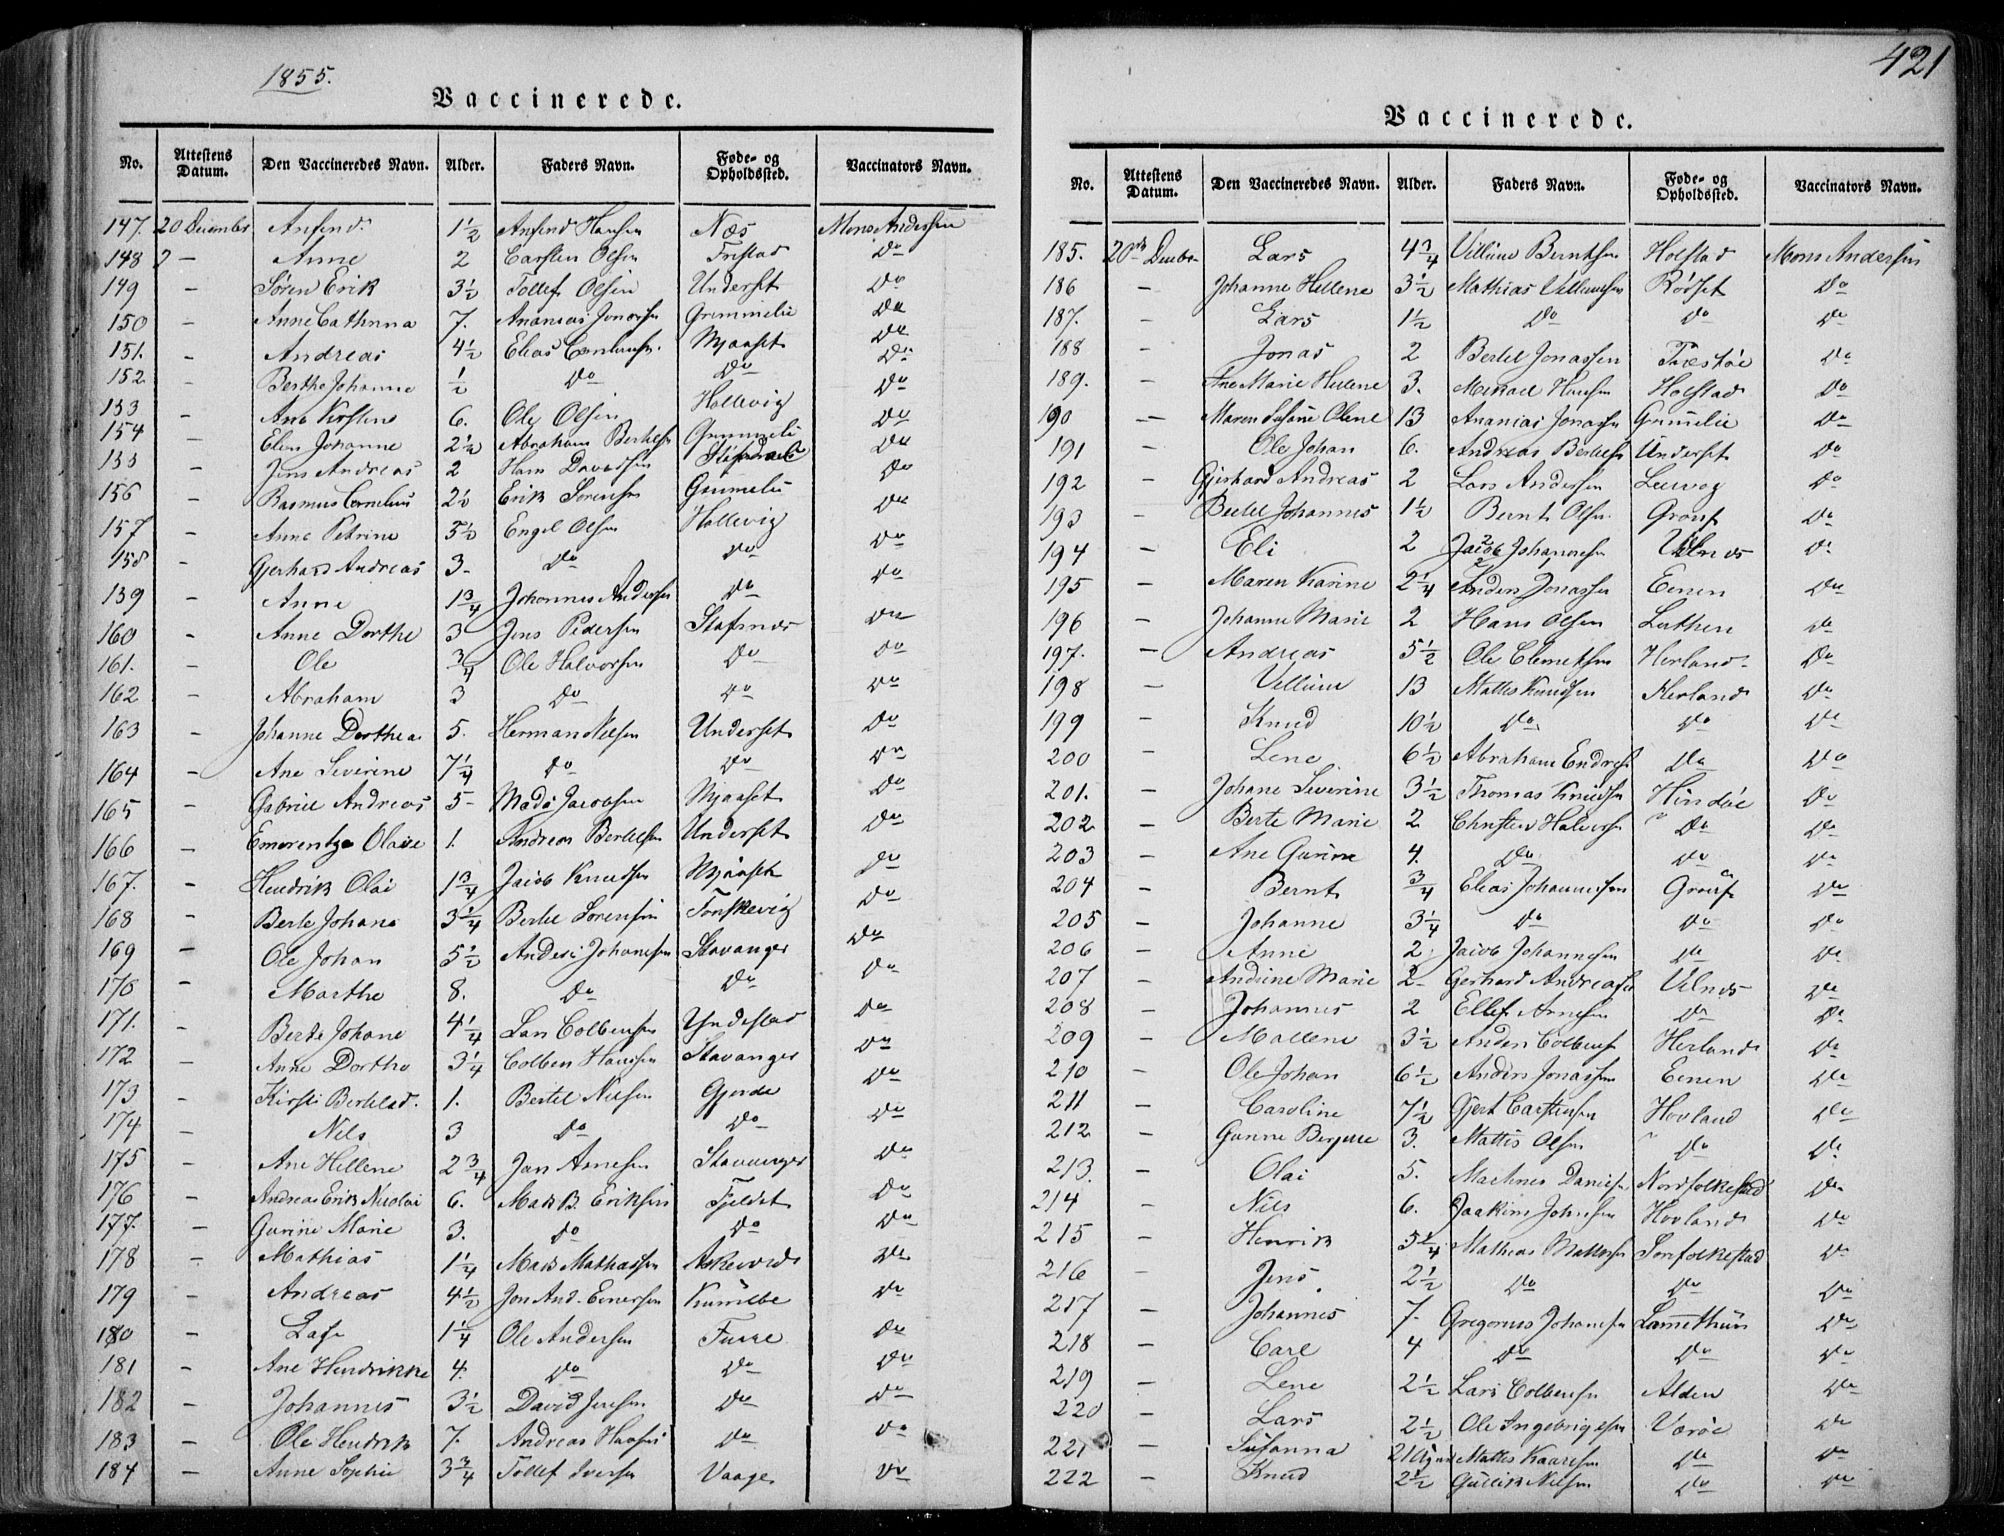 1855.
Vaccinerede.
No. Attestens Datum. Den Vaccineredes Navn. Alder. Faders Navn. Føde- og Opholdssted. Vaccinators Navn.
147. 20 December Anfind 1½ Anfind Hansen Næs Mons Andersen
148 — Anne 2 Carsten Olsen Tristad Do
149 — Søren Erik 3½ Tollef Olsen Underset Do
150 — Anne Cathrina 7. Ananias Jonassen Grimmelie Do
151. — Andreas 4½ Elias Mjaaset Do
152 — Berthe Johanne ½ Do Do Do
153 — Ane Kirstine 6. Ole Olsen Hellevig Do
154 — Elen Johanne 2½ Abraham Bertelsen Grimmeli Do
155 — Jens Andreas 2 Hans Davidsen Do
156 — Rasmus Cornelius 2½ Erik Sørensen Grimmeli Do
157 — Anne Petrine 5½ Engel Olsen Hellevig Do
158 — Gjerhard Andreas 3- Do Do Do
159 — Anne 1¾ Johannes Andersen Do Do
160 — Anne Dorthe 3 Jens Pedersen Stafsnæs Do
161. — Ole ¾ Ole Halvorsen Do Do
162 — Abraham 3 Do Do Do
163 — Johanne Dorthea 5. Herman Nilsen Underset Do
164 — Ane Severine 7¼ Do Do Do
165 — Gabriel Andreas 5- Mads Jacobsen Mjaaset Do
166 — Emerentze Olave 1. Andreas Bertelsen Underset Do
167. — Hendrik Olai 1¾ Jacob Knudsen Mjaaset Do
168 — Berte Johane 3¼ Bertel Sørensen Torskevig Do
169 — Ole Johan 5½ Anders Johansen Stavanger Do
170 — Marthe 8. Do Do Do
171. — Berte Johane 4¼ Lars Colbensen Yndestad Do
172 — Anne Dorthe 3¼ Colben Hansen Stavanger Do
173 — Kirsti Bertelsd. 1. Bertel Nilsen Gjerde Do
174 — Nils 3 Do Do Do
175 — Ane Hellene 2¾ Jan Arnesen Stavanger Do
176 — Andreas Erik Nicolai 6. Mads B. Eriksen Fjeldet Do
177. — Gurine Marie 3. Do Do Do
178 — Mathias 1¼ Mads Mathiassen Askevold Do
179 — Andreas 4½ Jon And. Einersen Do
180 — 1¼ Ole Andersen Furre Do
181 — Ane Hendrikke 4. Do Do Do
182 — Johannes 3½ David Jensen Do Do
183 — Ole Hendrik 7. Andreas Hansen Do Do
184 — Anne Sophie 3¾ Tollef Iversen Vaage Do
421
Vaccinerede.
No. Attestens Datum. Den Vaccineredes Navn. Alder. Faders Navn. Føde- og Opholdssted. Vaccinators Navn.
185. 20de Decbr Lars 4¾ Villum Berntsen Holstad Mons Andersen
186 — Johanne Hellene 3½ Mathias Villumsen Rødset Do
187. — Lars 1½ Do Do Do
188 — Jonas 2 Bertel Jonassen Træsøe Do
189. — Ane Marie Helene 3. Mikael Hansen Holstad Do
190 — Maren Susane Olene 13 Ananias Jonassen Grimelie Do
191 — Ole Johan 6. Andreas Bertelsen Underset Do
192 — Gjerhard Andreas 2 Lars Andersen Leevog Do
193 — Bertel Johannes 1½ Bernt Olsen Grøut Do
194 — Eli 2 Jacob Johannesen Vilnæs Do
195 — Maren Karine 2¼ Anders Jonassen Eenen Do
196 — Johanne Marie 2 Hans Olsen Lüthen Do
197. — Andreas 5½ Ole Clemetsen Herland Do
198 — Villum 13 Mattis Knudsen Herland Do
199 — Knud 10½ Do Do Do
200 — Lene 6½ Abraham Endresen Do Do
201. — Johane Severine 3½ Thomas Knudsen Hindøe Do
202 — Berte Marie 2 Christen Halvorsen Do Do
203 — Ane Gurine 4. Do Do Do
204 — Bernt ¾ Elias Johannessen Grøut Do
205 — Johanne 3¼ Do Do Do
206 — Anne 2 Jacob Johannesen Do Do
207 — Andrine Marie 2- Gerhard Andreasen Vilnæs Do
208 — Johannes 2 Ellef Arnesen Do Do
209 — Mallene 3½ Anders Colbensen Herland Do
210 — Ole Johan 6½ Anders Jonassen Eenen Do
211 — Caroline 7½ Gjert Carstensen Hovland Do
212 — Gunne 3. Mattis Olsen Do Do
213. — Olai 5. Mathias Danielsen Nordfolkestad Do
214 — Nils 6. Joakim Johnsen Hovland Do
215 — Henrik 5¼ Mathias Mattissen Sørfolkestad Do
216 — Jens 2½ Do Do Do
217 — Johannes 7. Gregorius Johansen Lammethun Do
218 — Carl 4 Do Do Do
219 — Lene 2½ Lars Colbensen Alden Do
220 — Lars 2½ Ole Ingebrigtsen Værøe Do
221 — Susanna 21 Mattis Kaaresen Do Do
222 — Knud 2½ Gullik Nilsen Do Do